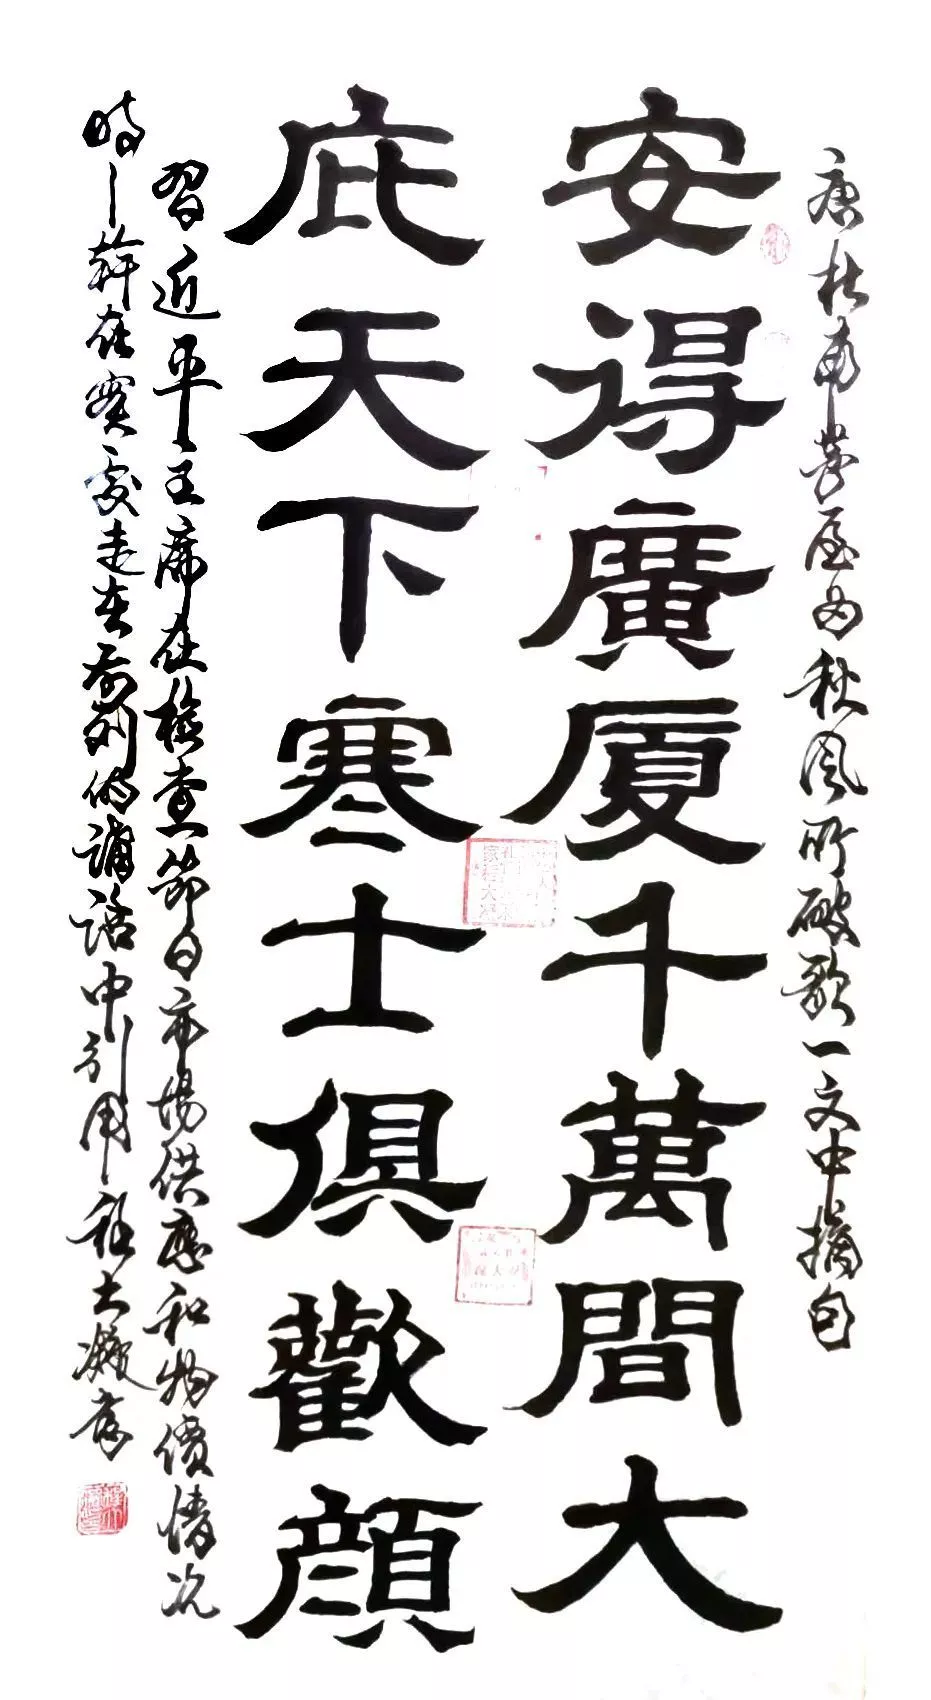 唐杜甫茅屋为秋风所破歌一文中摘句
安得廣厦千萬間大
庇天下寒士俱歡顔
習近平主席在檢查節日市場供應和物價情况
時一幹在實處走在前列的講話中引用程大